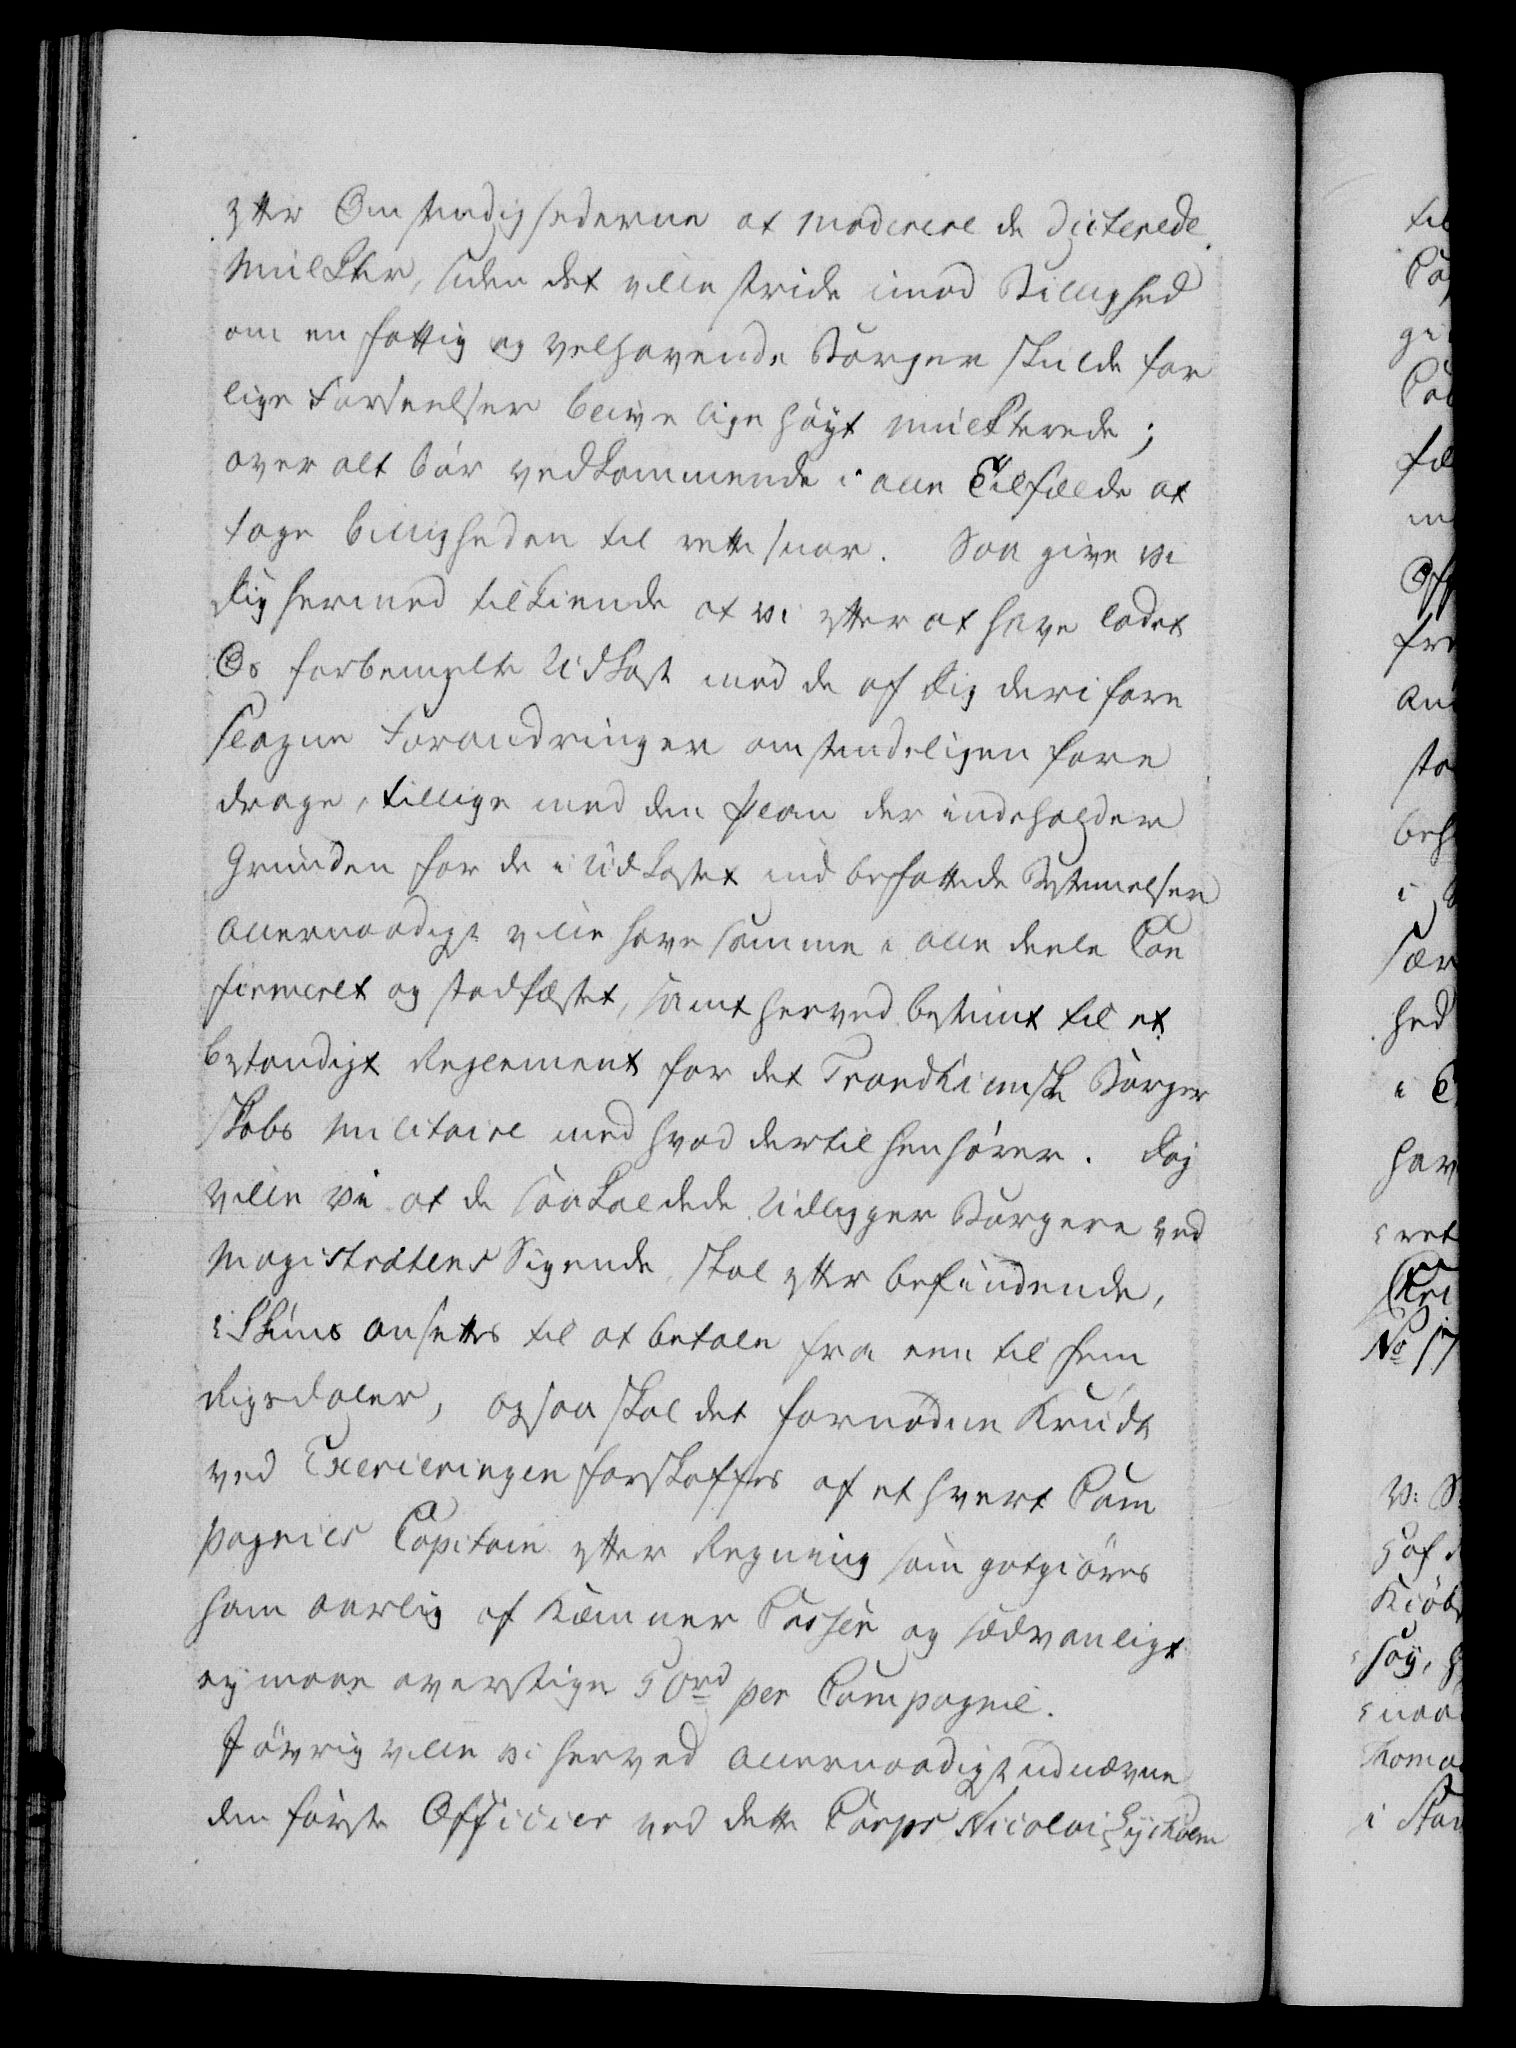 efter Omstændighederne at moderere de dicterede
Mulcter, siden det ville stride imod Billighed
om en fattig og velhavende Borger skulde for
lige Forseelser blive lige høyt mulcterede;
over alt bør vedkommende i alle Tilfælde at
tage billigheden til rettesnor. Saa give vi
dig hermed tilkiende at vi efter at have ladet
Os forbemelte Udkast med de af dig deri fore
slagne Forandringer omstendeligen fore
drage, tillige med den plan der indeholder
Grunden for de i Udkastet indbefattede Bestemmelser
allernaadigst ville have samme i alle deele Con
firmeret og stadfæstet, samt herved bestemt til et
bestandigt Reglement for det Trondhiemske Borger
skabs Militaire med hvad dertil henhører. Dog
ville vi at de saakaldede Udligger Borgere ved
Magistratens Sigende skal efter befindende,
i Skims ansettes til at betale fra een til fem
Rigsdaler, ogsaa skal det fornødne Krudt
ved Exerceringen forskaffes af et hvert Com
pagnies Capitain efter Regning som godtgiøres
ham aarlig af Kæmner Cassen og sædvanligt
ey maae overstige 50rd per Compagnie.
I øvrig ville vi herved allernaadigst udnævne
den første Officier ved dette Corps Nicolai